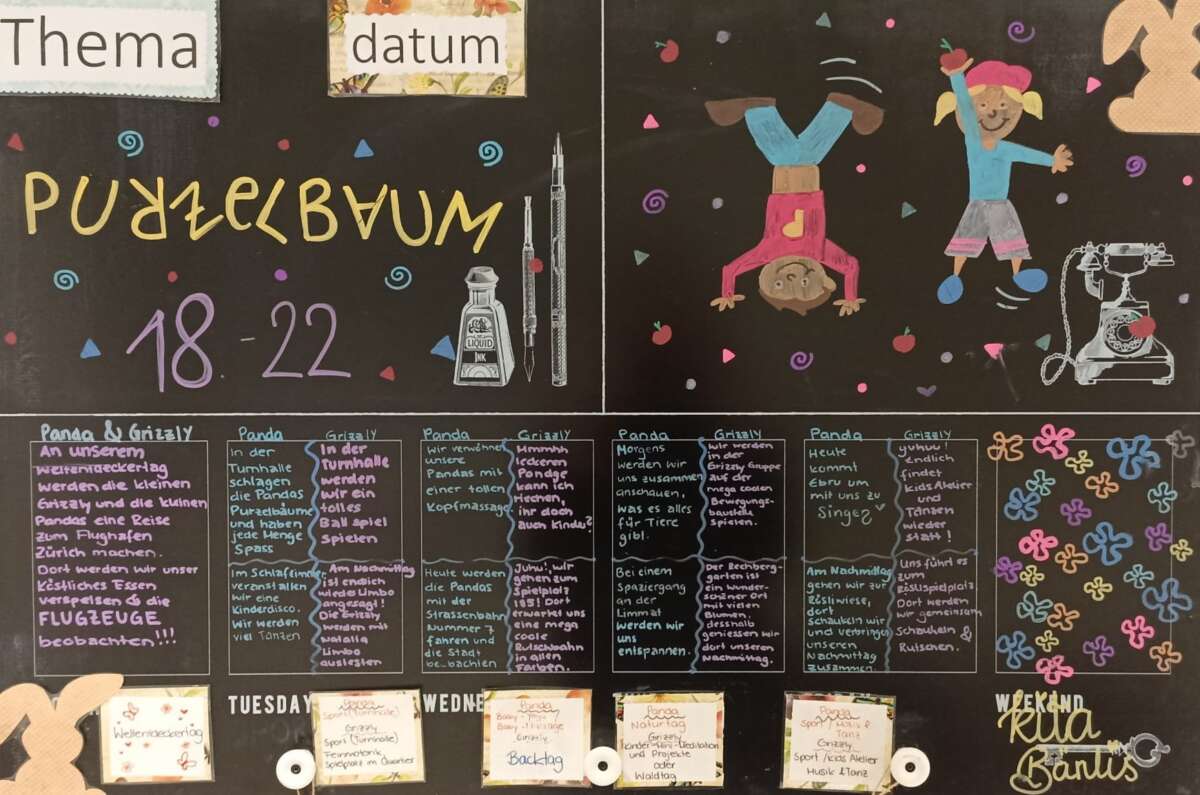 Thema
datum
PURZELBAUM
18. - 22
LIQUID
INK
Panda & Grizzly
An unserem
Weltentdeckertag
werden die kleinen
Grizzly und die kleinen
Pandas eine Reise
zum Flughafen
Zürich machen.
Dort werden wir unser
Köstliches Essen
verspeisen & die
FLUGZEUGE
beobachten!!!
Panda
In der
Turnhalle
schlagen
die Pandas
Purzelbäume
und haben
jede Menge
Spass
Grizzly
In der
Turnhalle
werden
wir ein
tolles
Ball spiel
spielen
Im Schlafzimmer
veranstalten
wir eine
Kinderdisco.
Wir werden
viel Tanzen
Am Nachmittag
ist endlich
wieder Limbo
angesagt!
Die Grizzly
werden mit
Natalia
Limbo
austesten
Panda
Wir verwöhnen
unsere
Pandas mit
einer tollen
Kopfmassage
Grizzly
Hmmhh
leckeren
kann ich
riechen,
ihr doch
auch Kinder?
Heute werden
die Pandas
mit der
Strassenbahn
Nummer 7
fahren und
die Stadt
beobachten
Juhu! wir
gehen zum
Spielplatz
Dort
erwartet uns
eine mega
coole
Rutschbahn
in allen
Farben.
Panda
Morgens
werden wir
uns zusammen
anschauen,
was es alles
für Tiere
gibt.
Grizzly
Wir werden
in der
Grizzly Gruppe
auf der
mega coolen
Bewegungs-
baustelle
spielen.
Bei einem
Spaziergang
an der
Limmat
werden wir
uns
entspannen.
Der Rechberg-
garten ist
ein wunder-
schöner Ort
mit vielen
Blumen
desshalb
geniessen wir
dort unseren
Nachmittag.
Panda
Heute
kommt
Ebru um
mit uns zu
Singen
Grizzly
yuhuu!
endlich
findet
Kids Atelier
und
Tanzen
wieder
statt!
Am Nachmittag
gehen wir zur
Röslíwiese,
dort
schaukeln wir
und verbringen
unseren
Nachmittag
zusammen
Uns führt es
zum
Röslispielplatz
Dort werden
wir gemeinsam
Schaukeln &
Rutschen.
TUESDAY
WEDNE
WEEKEND
Weltentdeckertag
Sport (Turnhalle)
Grizzly
Sport (Turnhalle)
Feinmotorik
Spielplatz im Quartier
Panda
Baby-Massage
Grizzly
Backtag
Panda
Naturtag
Grizzly
Kinder-Yoga-Meditation
und Projekte
oder
Waldtag
Panda
Sport / Musik &
Tanz
Grizzly
Sport / Kids Atelier
Musik & Tanz
Kita
Bärlis